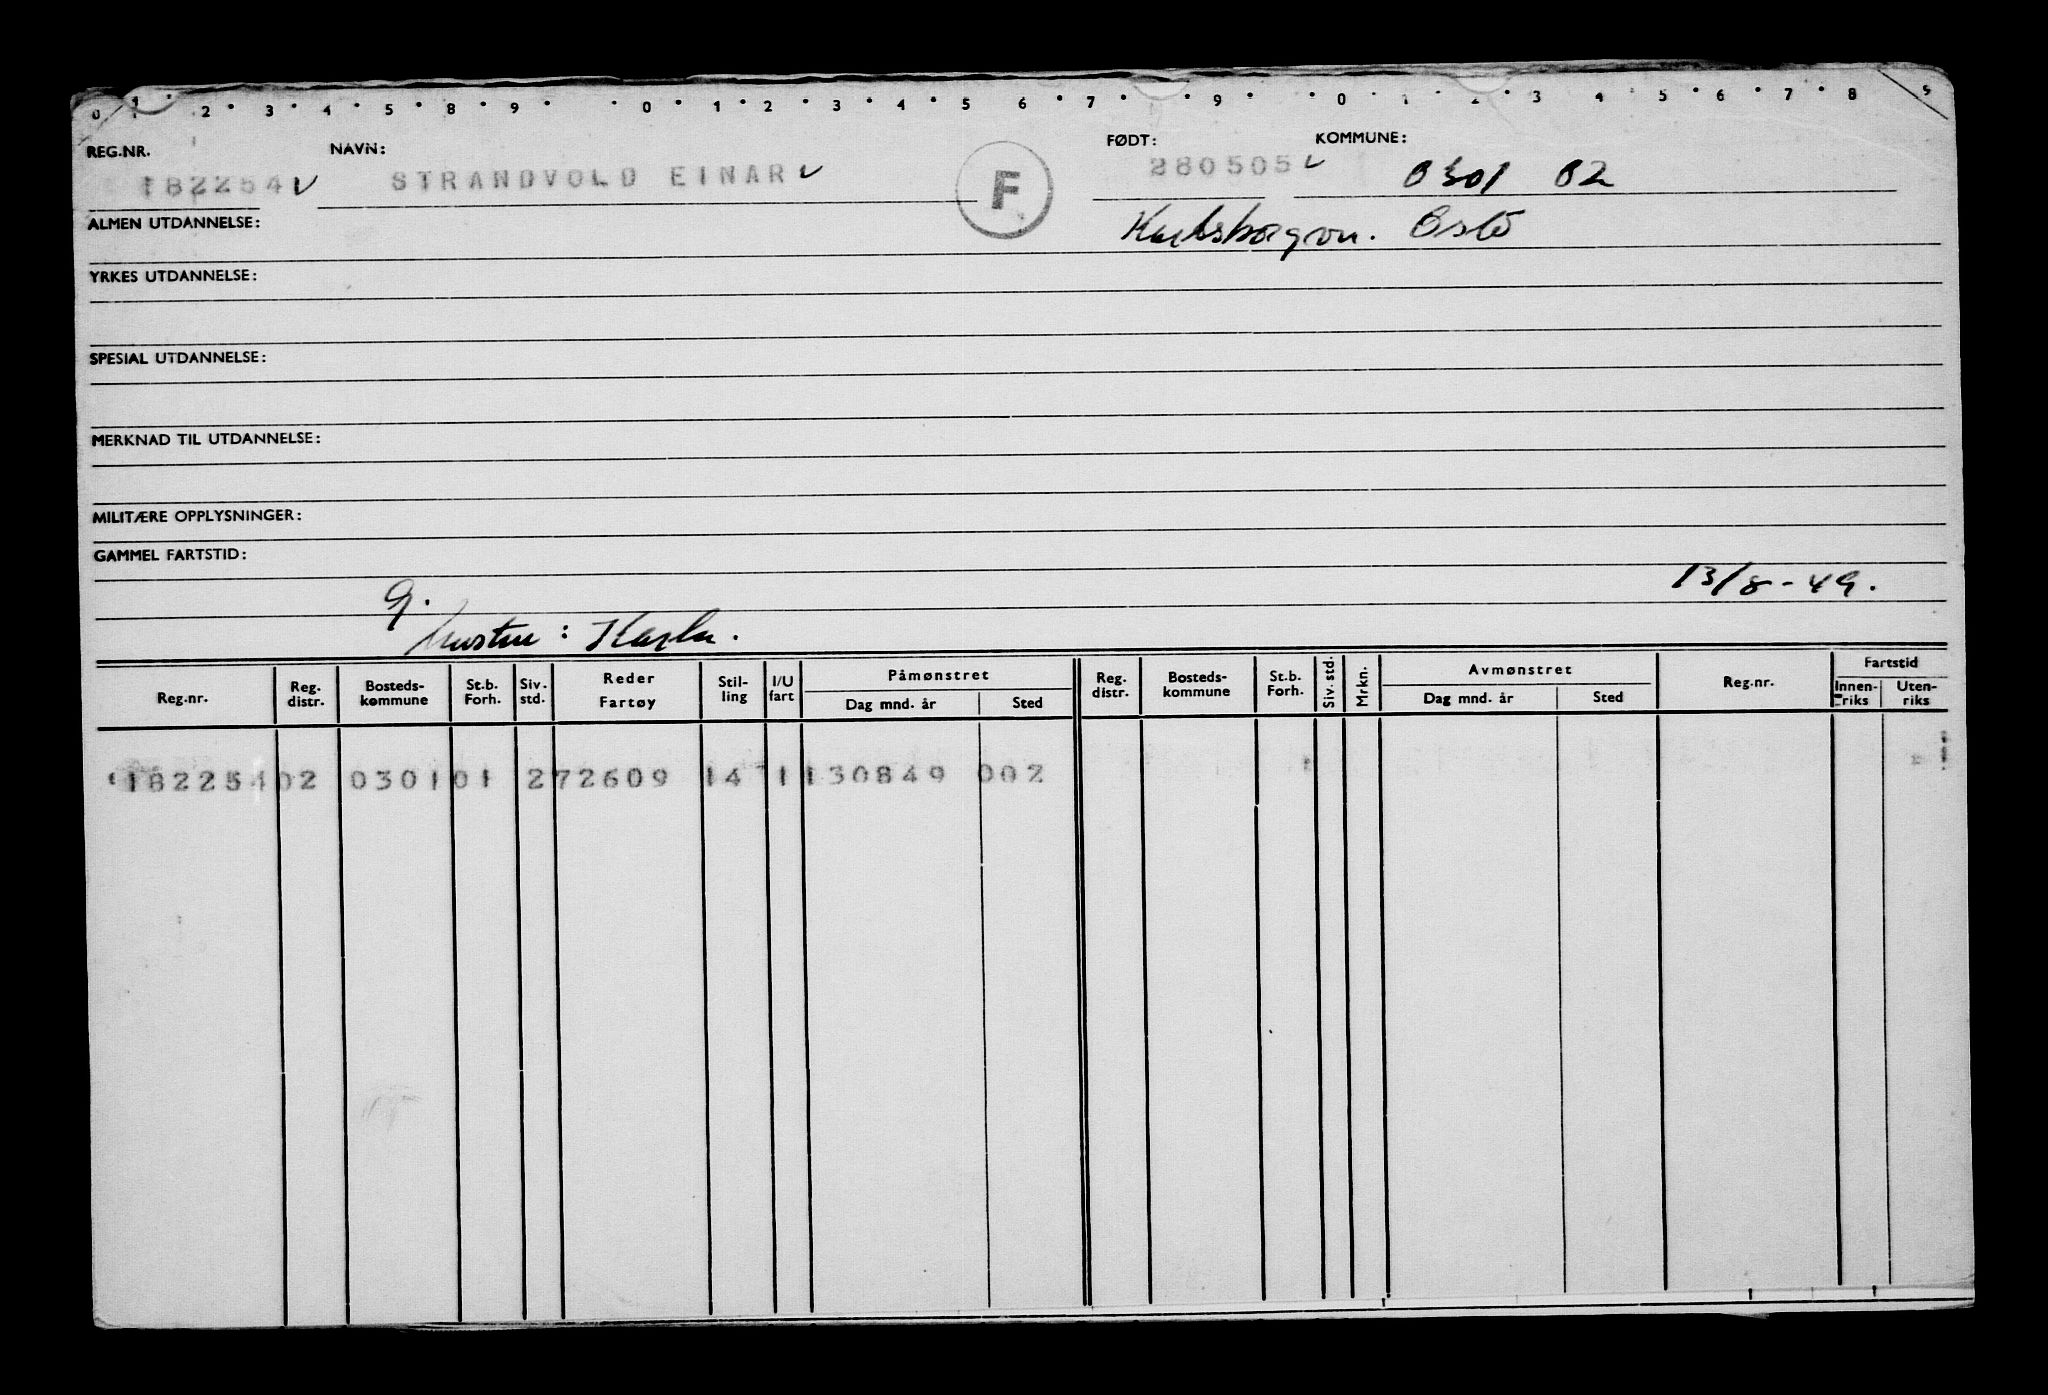 0 1 2 3 4 5 8 9 0 1 2 3 4 5 6 7 9 0 1 2 3 4 5 6 7 8 9
REG.NR. NAVN: FØDT: KOMMUNE:
182254 STRANDVOLD EINAR F 280505 0301 02
ALMEN UTDANNELSE: Oslo
YRKES UTDANNELSE:
SPESIAL UTDANNELSE:
MERKNAD TIL UTDANNELSE:
MILITÆRE OPPLYSNINGER:
GAMMEL FARTSTID:
13/8-49.
g.
: Karla.
Reg.nr. Reg. distr. Bosteds-kommune St.b. Forh. Siv. std. Reder Fartøy Stil-ling I/U fart Påmønstret Dag mnd. år Sted Reg. distr. Bosteds-kommune St.b. Forh. Siv. std. Mrkn. Avmønstret Dag mnd. år Sted Reg.nr. Fartstid Innen-riks Uten-riks
182254 02 0301 01 2 72609 14 1 130849 002